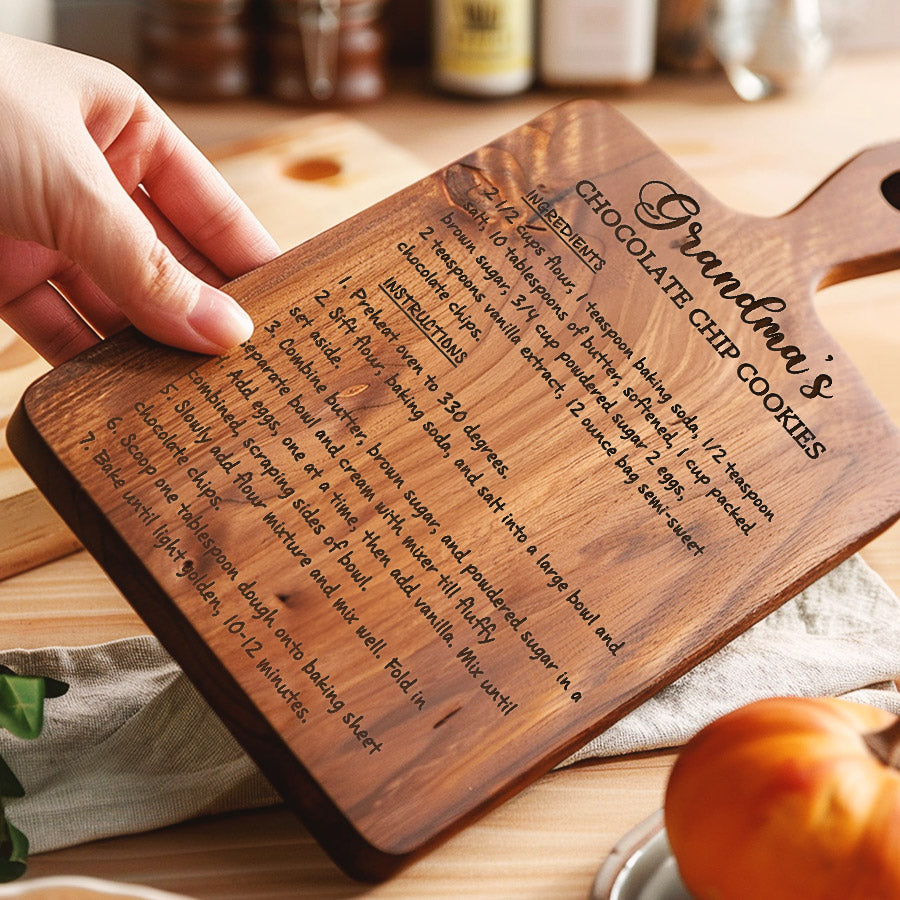 Grandma's
CHOCOLATE CHIP COOKIES
INGREDIENTS
2 1/2 cups flour, 1 teaspoon baking soda, 1/2 teaspoon
salt, 10 tablespoons of butter, softened, 1 cup packed
brown sugar, 3/4 cup powdered sugar 2 eggs,
2 teaspoons vanilla extract, 12 ounce bag semi-sweet
chocolate chips.
INSTRUCTIONS
1. Preheat oven to 330 degrees.
2. Sift flour, baking soda, and salt into a large bowl and
set aside.
3. Combine butter, brown sugar, and powdered sugar in a
separate bowl and cream with mixer till fluffy
4. Add eggs, one at a time, then add vanilla. Mix until
combined, scraping sides of bowl.
5. Slowly add flour mixture and mix well. Fold in
chocolate chips.
6. Scoop one tablespoon dough onto baking sheet
7. Bake until light golden, 10-12 minutes.